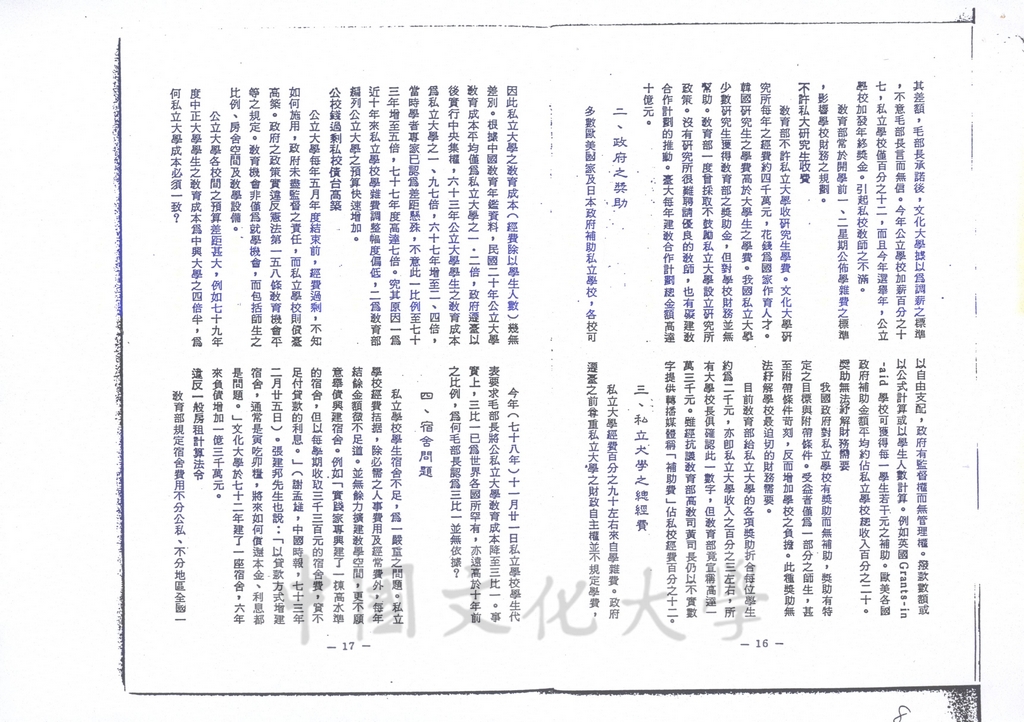 其差額，毛部長承諾後，文化大學據以爲調薪之標準
，不意毛部長言而無信。今年公立學校加薪百分之十
七，私立學校僅百分之十二，而且今年選舉年，公立
學校加發年終獎金。引起私校教師之不滿。
教育部常於開學前一、二星期公佈學雜費之標準
，影響學校財務之規劃。
不許私大研究生收費
教育部不許私立大學收研究生學費。文化大學研
究所每年之經費約四千萬元，花錢爲國家作育人才。
韓國研究生之學費高於大學生之學費。我國私立大學
少數研究生獲得教育部之獎助金，但對學校財務並無
幫助。教育部一度曾採取不鼓勵私立大學設立研究所
政策。沒有研究所很難聘請優良的教師，也有礙建教
合作計劃的推動。臺大每年建教合作計劃總金額高達
十億元。
二、政府之獎助
多數歐美國家及日本政府補助私立學校，各校可
以自由支配，政府有監督權而無管理權。撥款數額或
以公式計算或以學生人數計算。例如英國Grants-in
-aid 學校可獲得每一學生若干元之補助。歐美各國
政府補助金額平均約佔私立學校總收入百分之二十。
獎助無法紓解財務需要
我國政府對私立學校有獎助而無補助，獎助有特
定之目標與附帶條件。受益者僅爲一部分之師生，甚
至附帶條件苛刻，反而增加學校之負擔。此種獎助無
法紓解學校最迫切的財務需要。
目前教育部給私立大學的各項獎助折合每位學生
約爲二千元，亦即私立大學收入之百分之三左右，所
有大學校長俱確認此一數字，但教育部竟宣稱高達一
萬三千元。雖經抗議教育部高教司黃司長仍以不實數
字提供轉播媒體稱「補助費」佔私校經費百分之十二。
三、私立大學之總經費
私立大學經費百分之九十左右來自學雜費。政府
遷臺之前尊重私立大學之財政自主權並不規定學費，
— 16 —
因此私立大學之教育成本（經費除以學生人數）幾無
差別。根據中國教育年鑑資料，民國二十年公立大學
教育成本平均僅爲私立大學之一．二倍，政府遷臺以
後實行中央集權，六十三年公立大學學生之教育成本
爲私立大學之一、九七倍，六十七年增至二、四倍，
當時學者專家已認爲差距懸殊，不意此一比例至七十
三年增至五倍，七十七年度高達七倍。究其原因一爲
近十年來私立學校學雜費調整幅度偏低，二爲教育部
編列公立大學之預算快速增加。
公校錢過剩私校債台高築
公立大學每年五月年度結束前，經費過剩，不知
如何施用，政府未盡監督之責任，而私立學校則債臺
高築。政府之政策實違反憲法第一五八條教育機會平
等之規定。教育機會非僅爲就學機會，而包括師生之
比例、房舍空間及教學設備。
公立大學各校間之預算差距甚大，例如七十九年
度中正大學學生之教育成本爲中興大學之四倍半，爲
何私立大學成本必須一致？
今年（七十八年）十一月廿一日私立學校學生代
表要求毛部長將公私立大學教育成本降至三比一。事
實上，三比一已爲世界各國所罕有，亦遠高於十年前
之比例，爲何毛部長認爲三比一並無依據？
四、宿舍問題
私立學校學生宿舍不足，爲一嚴重之問題。私立
學校經費拮据，除必需之人事費用及經常費外，每年
結餘金額微不足道。並無餘力擴建教學空間，更不願
意舉債興建宿舍。例如「實踐家專興建了一棟高水準
的宿舍，但以每學期收取三千三百元的宿舍費，實不
足付貸款的利息。」（謝孟雄，中國時報，七十三年
二月廿五日）。張建邦先生也說：「以貸款方式增建
宿舍，通常是寅吃卯糧，將來如何償還本金、利息都
是問題。」文化大學於七十二年建了一座宿舍，六年
來負債增加一億三千萬元。
違反一般房租計算法令
教育部規定宿舍費用不分公私、不分地區全國一
— 17 —
中國文化大學
8